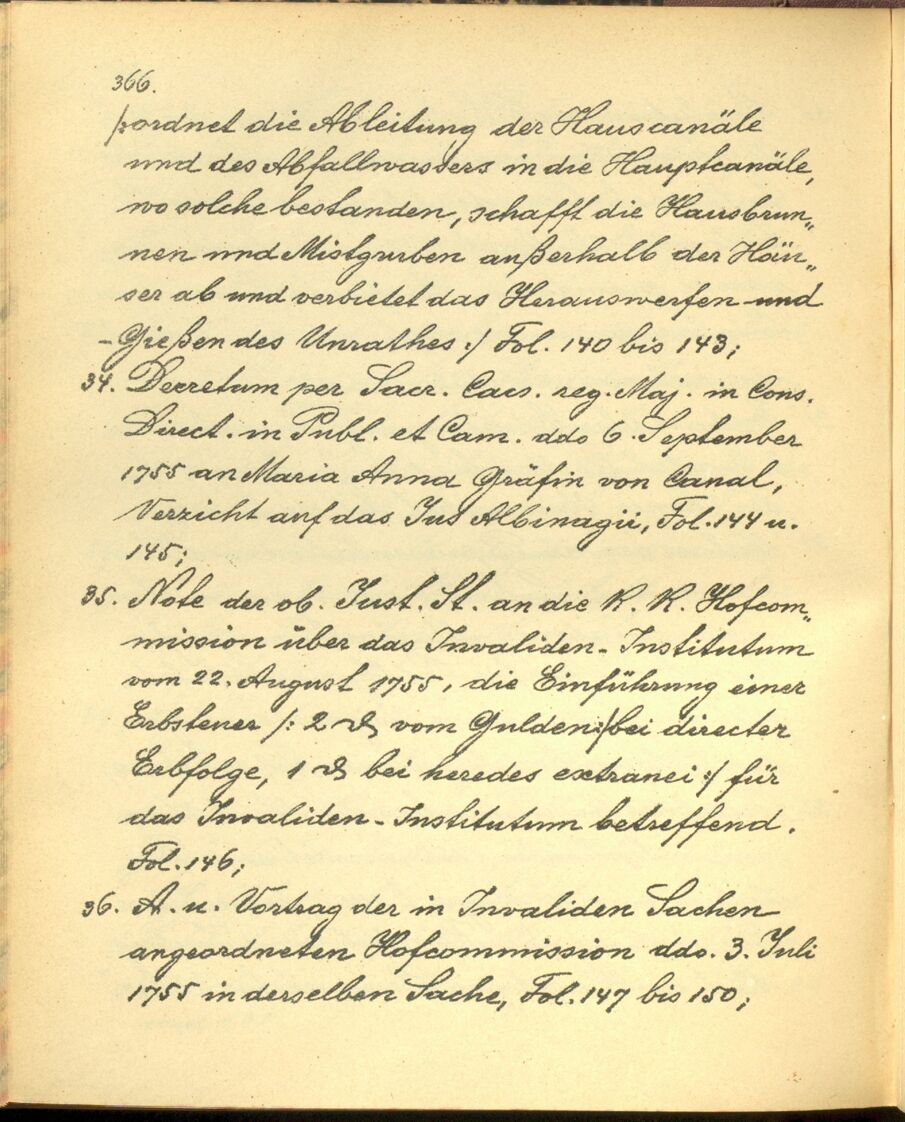 366.
/:ordnet die Ableitung der Hauscanäle
und des Abfallwassers in die Hauptcanäle,
wo solche bestanden, schafft die Hausbrun„
nen und Mistgruben außerhalb der Häu„
ser ab und verbietet das Herauswerfen und
-Gießen des Unrathes :/ Fol. 140 bis 143;
34. Decretum per Sacr. Caes. reg. Maj. in Cons.
Direct. in Publ. et Cam. ddo 6. September
1755 an Maria Anna Gräfin von Canal,
Verzicht auf das Jus Albinagii, Fol. 144 u.
145;
35. Note der ob. Just. St. an die K. K. Hofcom„
mission über das Invaliden-Institutum
vom 22. August 1755, die Einführung einer
Erbsteuer /: 2 ₰ vom Gulden :/ bei directer
Erbfolge, 1 ₰ bei heredes extranei :/ für
das Invaliden-Institutum betreffend.
Fol. 146;
36. A. u. Vortrag der in Invaliden Sachen
angeordneten Hofcommission ddo. 3. Juli
1755 in derselben Sache, Fol. 147 bis 150;